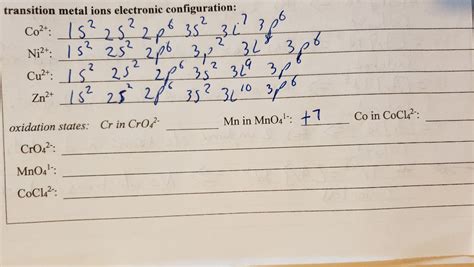 transition metal ions electronic configuration:
Co²⁺: 1s² 2s² 2p⁶ 3s² 3d⁷ 3p⁶
Ni²⁺: 1s² 2s² 2p6 3p² 3d⁸ 3p⁶
Cu²⁺: 1s² 2s² 2p⁶ 3s² 3d⁹ 3p⁶
Zn²⁺ 1s² 2s² 2p⁶ 3s² 3d¹⁰ 3p⁶
oxidation states: Cr in CrO₄²⁻ Mn in MnO₄¹⁻: +7 Co in CoCl₄²⁻:
CrO₄²⁻:
MnO₄¹⁻:
CoCl₄²⁻: